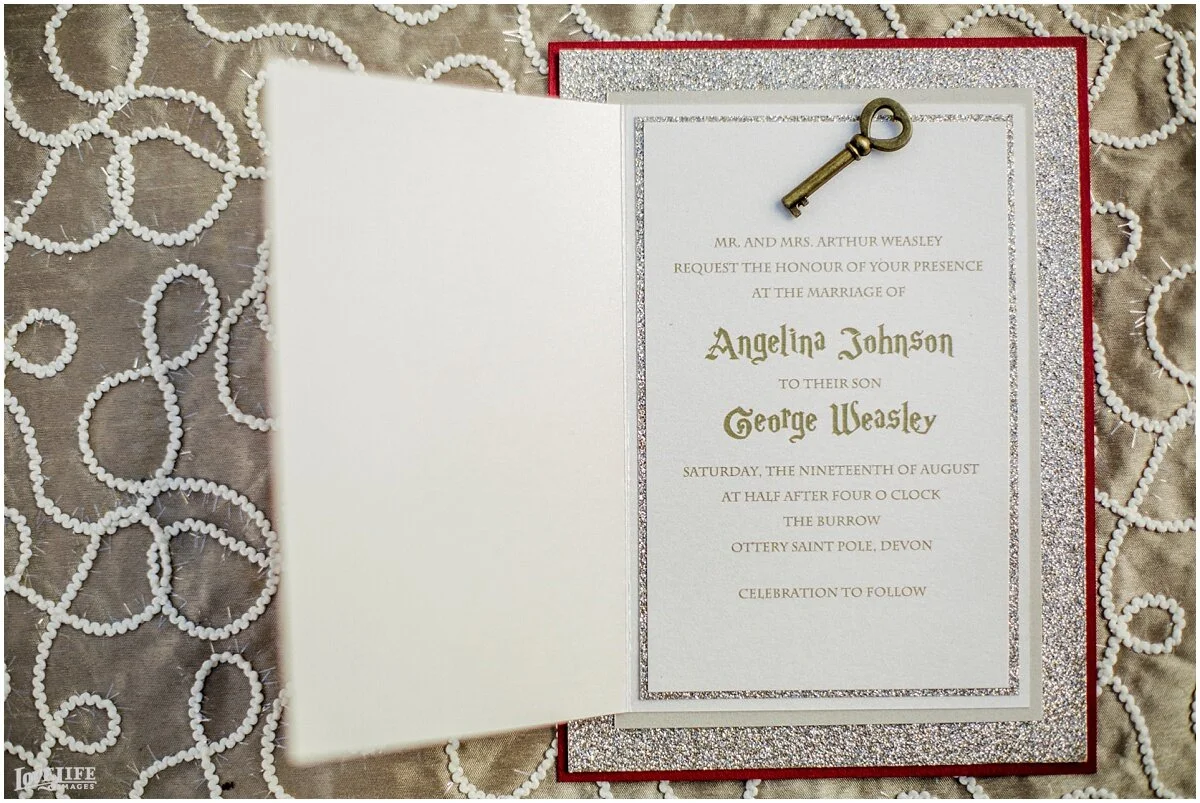 MR. AND MRS. ARTHUR WEASLEY
REQUEST THE HONOUR OF YOUR PRESENCE
AT THE MARRIAGE OF
Angelina Johnson
TO THEIR SON
George Weasley
SATURDAY, THE NINETEENTH OF AUGUST
AT HALF AFTER FOUR O CLOCK
THE BURROW
OTTERY SAINT POLE, DEVON
CELEBRATION TO FOLLOW
LOVE LIFE
IMAGES